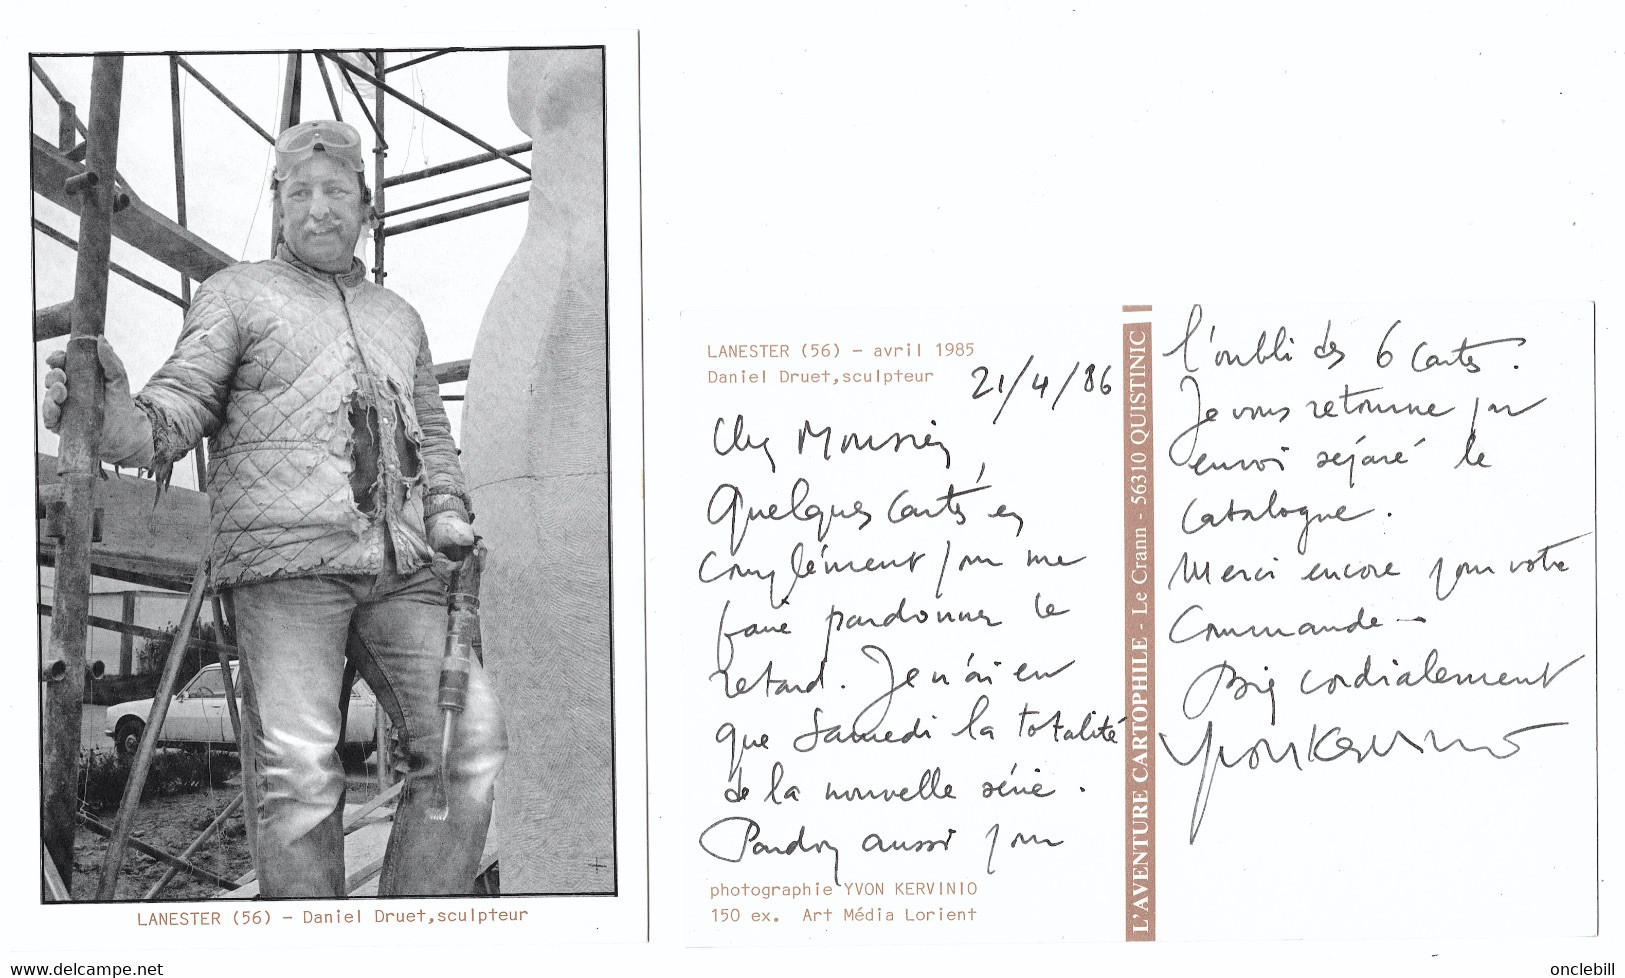 LANESTER (56) – Daniel Druet,sculpteur
LANESTER (56) – avril 1985
Daniel Druet,sculpteur
21/4/86
Cher Monsieur,
Quelques cartes en
complément pour me
faire pardonner le
retard. Je n'ai eu
que Samedi la totalité
de la nouvelle série.
Pardon aussi pour
photographie YVON KERVINIO
150 ex. Art Média Lorient
L'AVENTURE CARTOPHILE - Le Crann - 56310 QUISTINIC
l'oubli des 6 cartes.
Je vous retourne par
envoi séparé le
catalogue.
Merci encore pour votre
Commande –
Bien cordialement
Yvon Kervinio
www.delcampe.net
onclebill